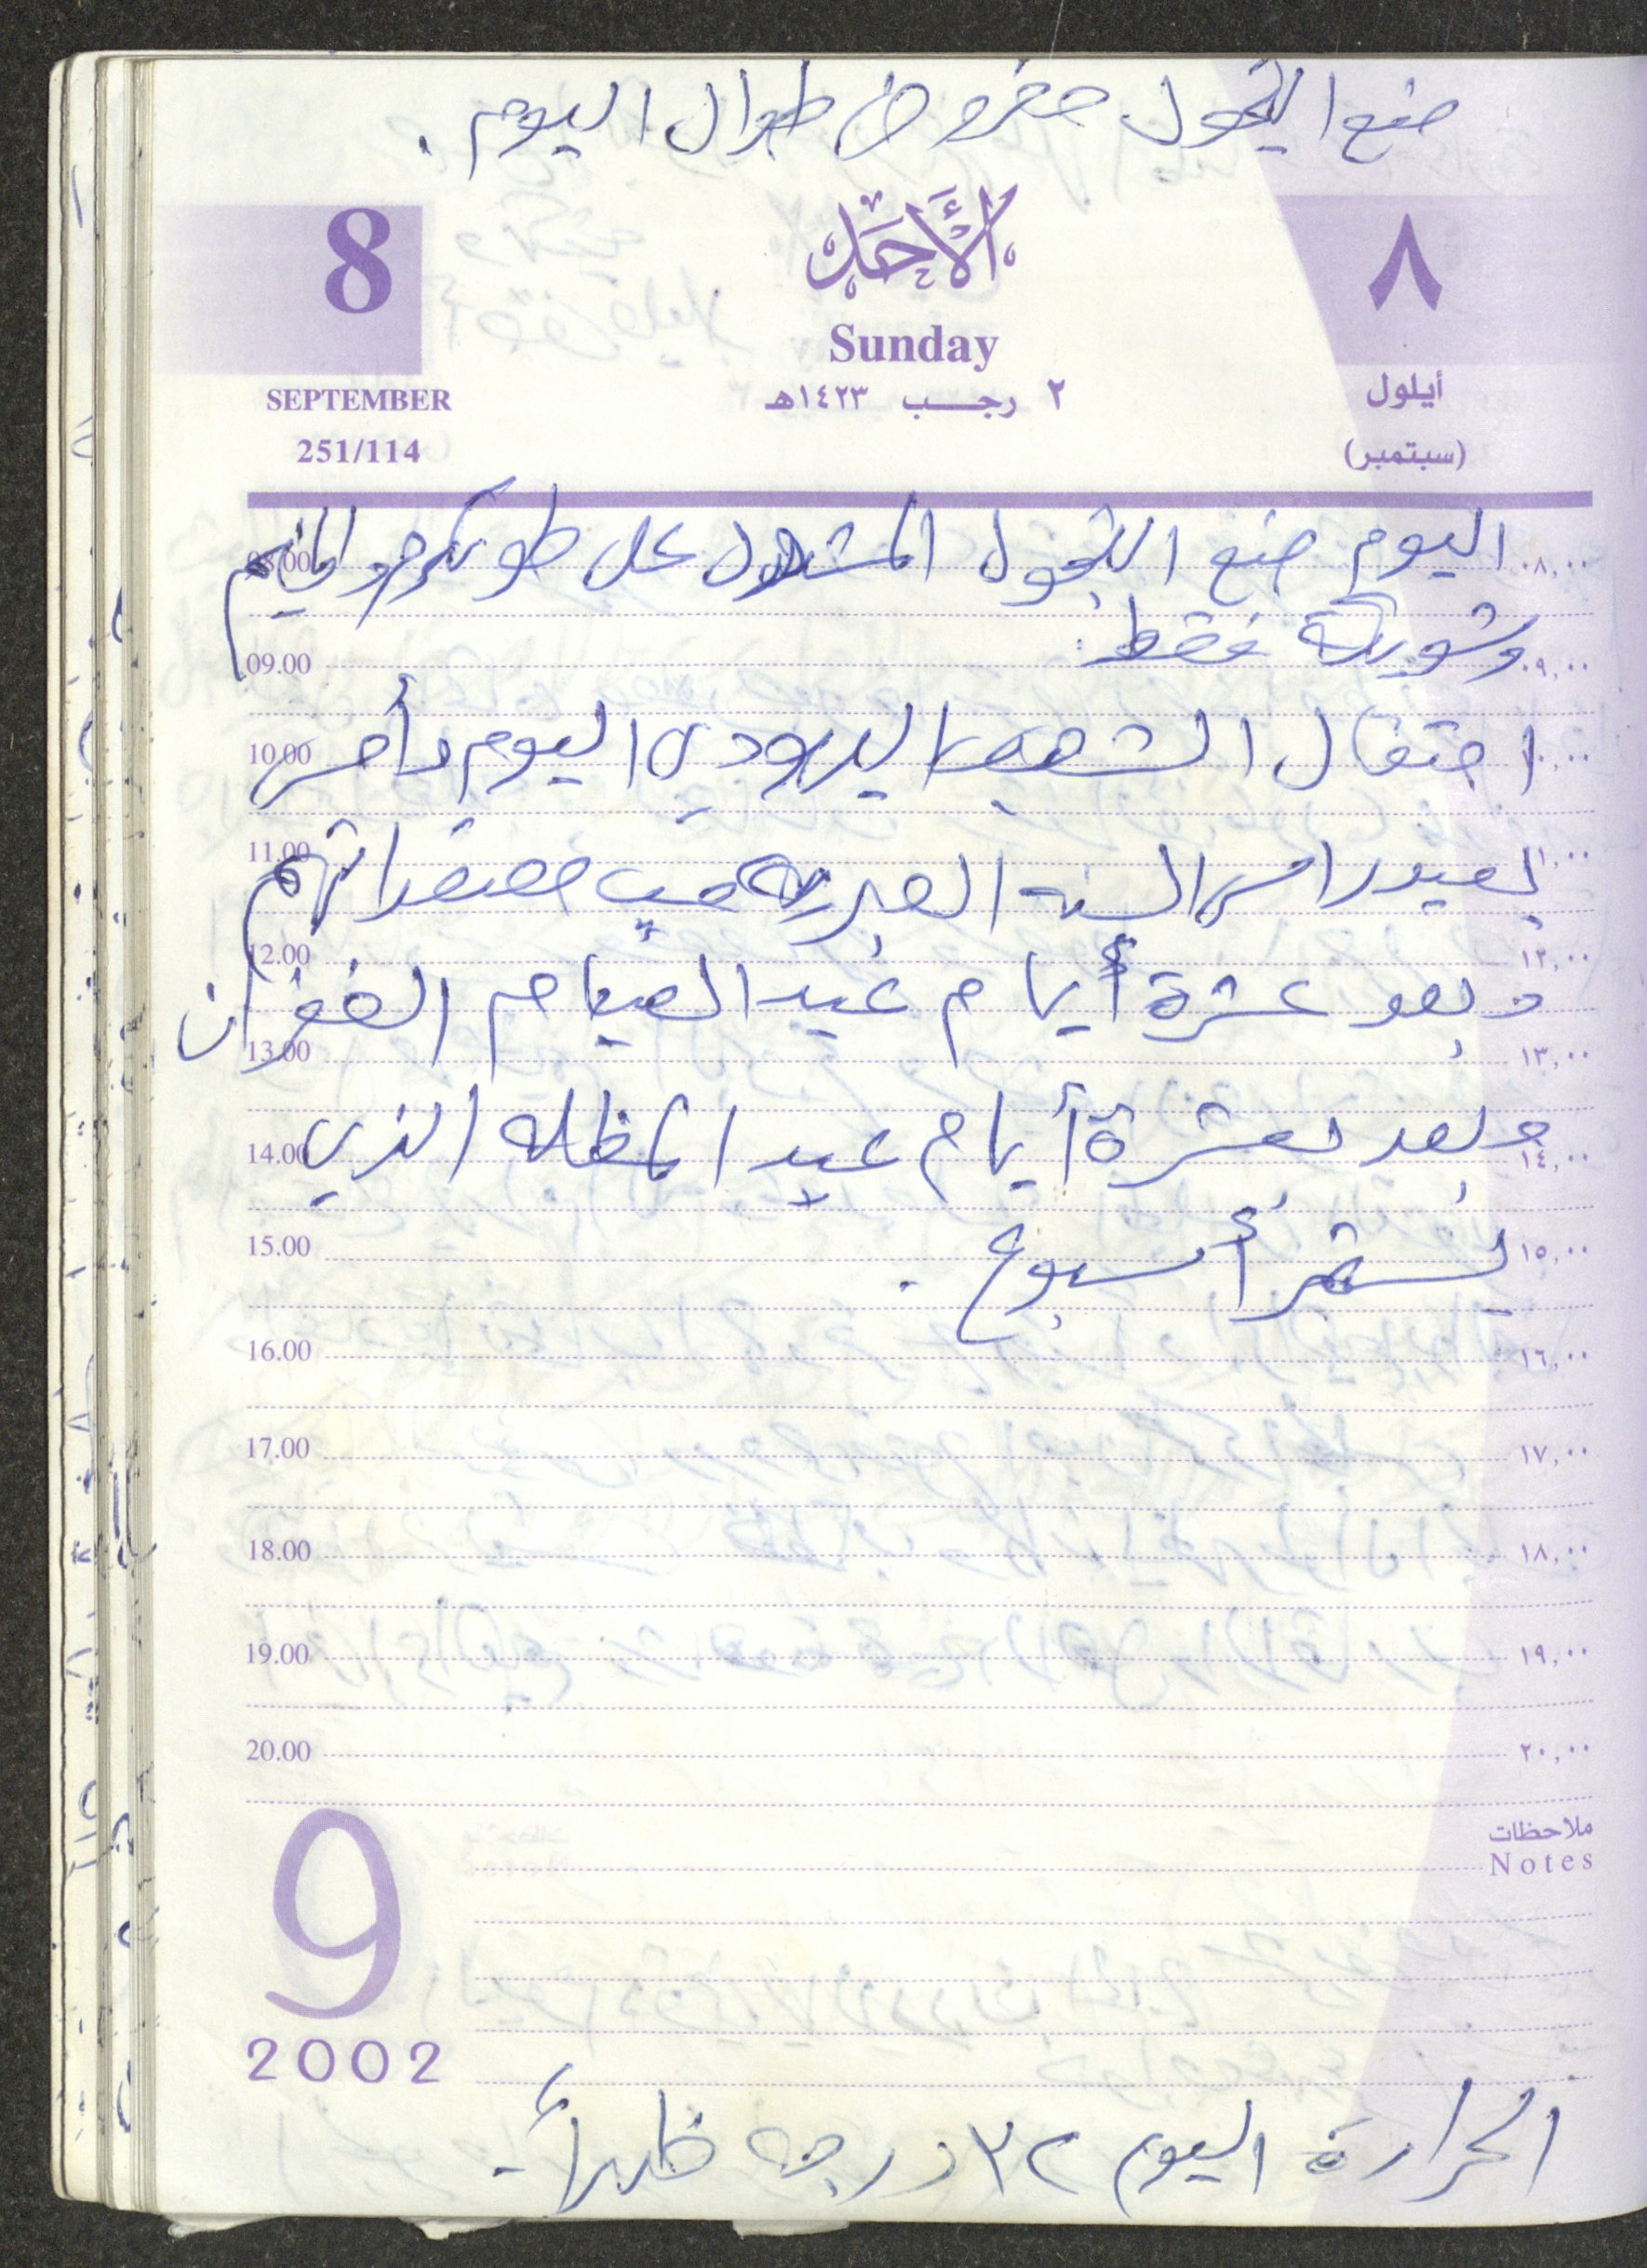 منع التجول مفروض طوال اليوم .
8
الأَحَد
٨
Sunday
SEPTEMBER
٢ رجب ١٤٢٣هـ
أيلول
251/114
(سبتمبر)
اليوم منع التجول المشدد على طولكرم والمخيم
08.00 ٠٨,٠٠
وشويكة فقط .
09.00 ٠٩,٠٠
احتفال الشعب اليهودي اليوم وأمس
10.00 ١٠,٠٠
بعيد راس السنه العبريه حسب معتقداتهم
11.00 ١١,٠٠
12.00 ١٢,٠٠
وبعد عشرة أيام عيد الصيام الغفران
13.00 ١٣,٠٠
وبعد عشرة أيام عيد المظله الذي
14.00 ١٤,٠٠
يستمر أسبوع .
15.00 ١٥,٠٠
16.00 ١٦,٠٠
17.00 ١٧,٠٠
18.00 ١٨,٠٠
19.00 ١٩,٠٠
20.00 ٢٠,٠٠
ملاحظات
Notes
9
2002
الحرارة اليوم ٣٢ درجه ظهراً .